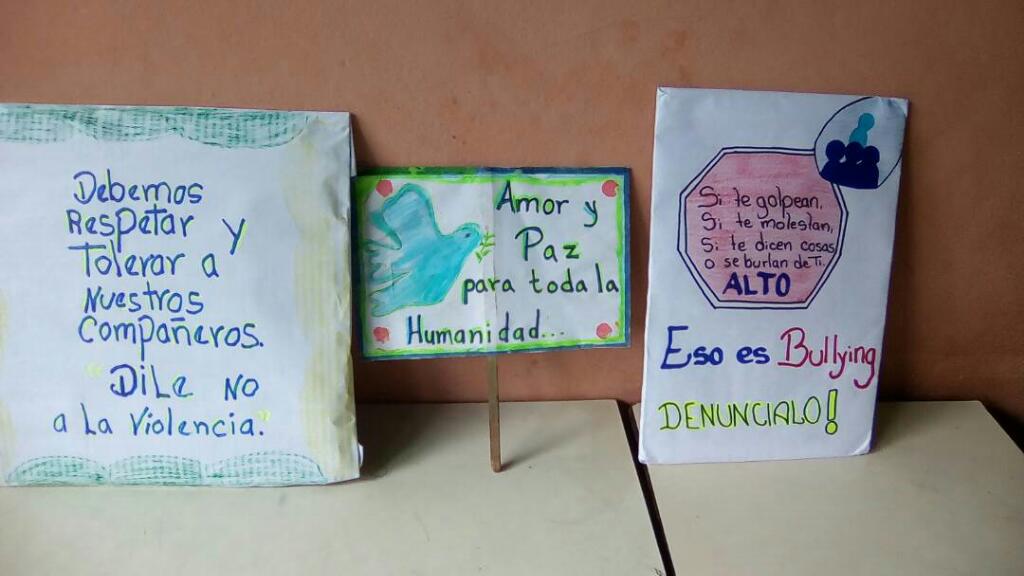 Debemos
Respetar y
Tolerar a
Nuestros
Compañeros.
"Dile No
a La Violencia."
Amor y
Paz
para toda la
Humanidad...
Si te golpean,
Si te molestan,
Si te dicen cosas
o se burlan de Ti.
ALTO
Eso es Bullying
DENUNCIALO!